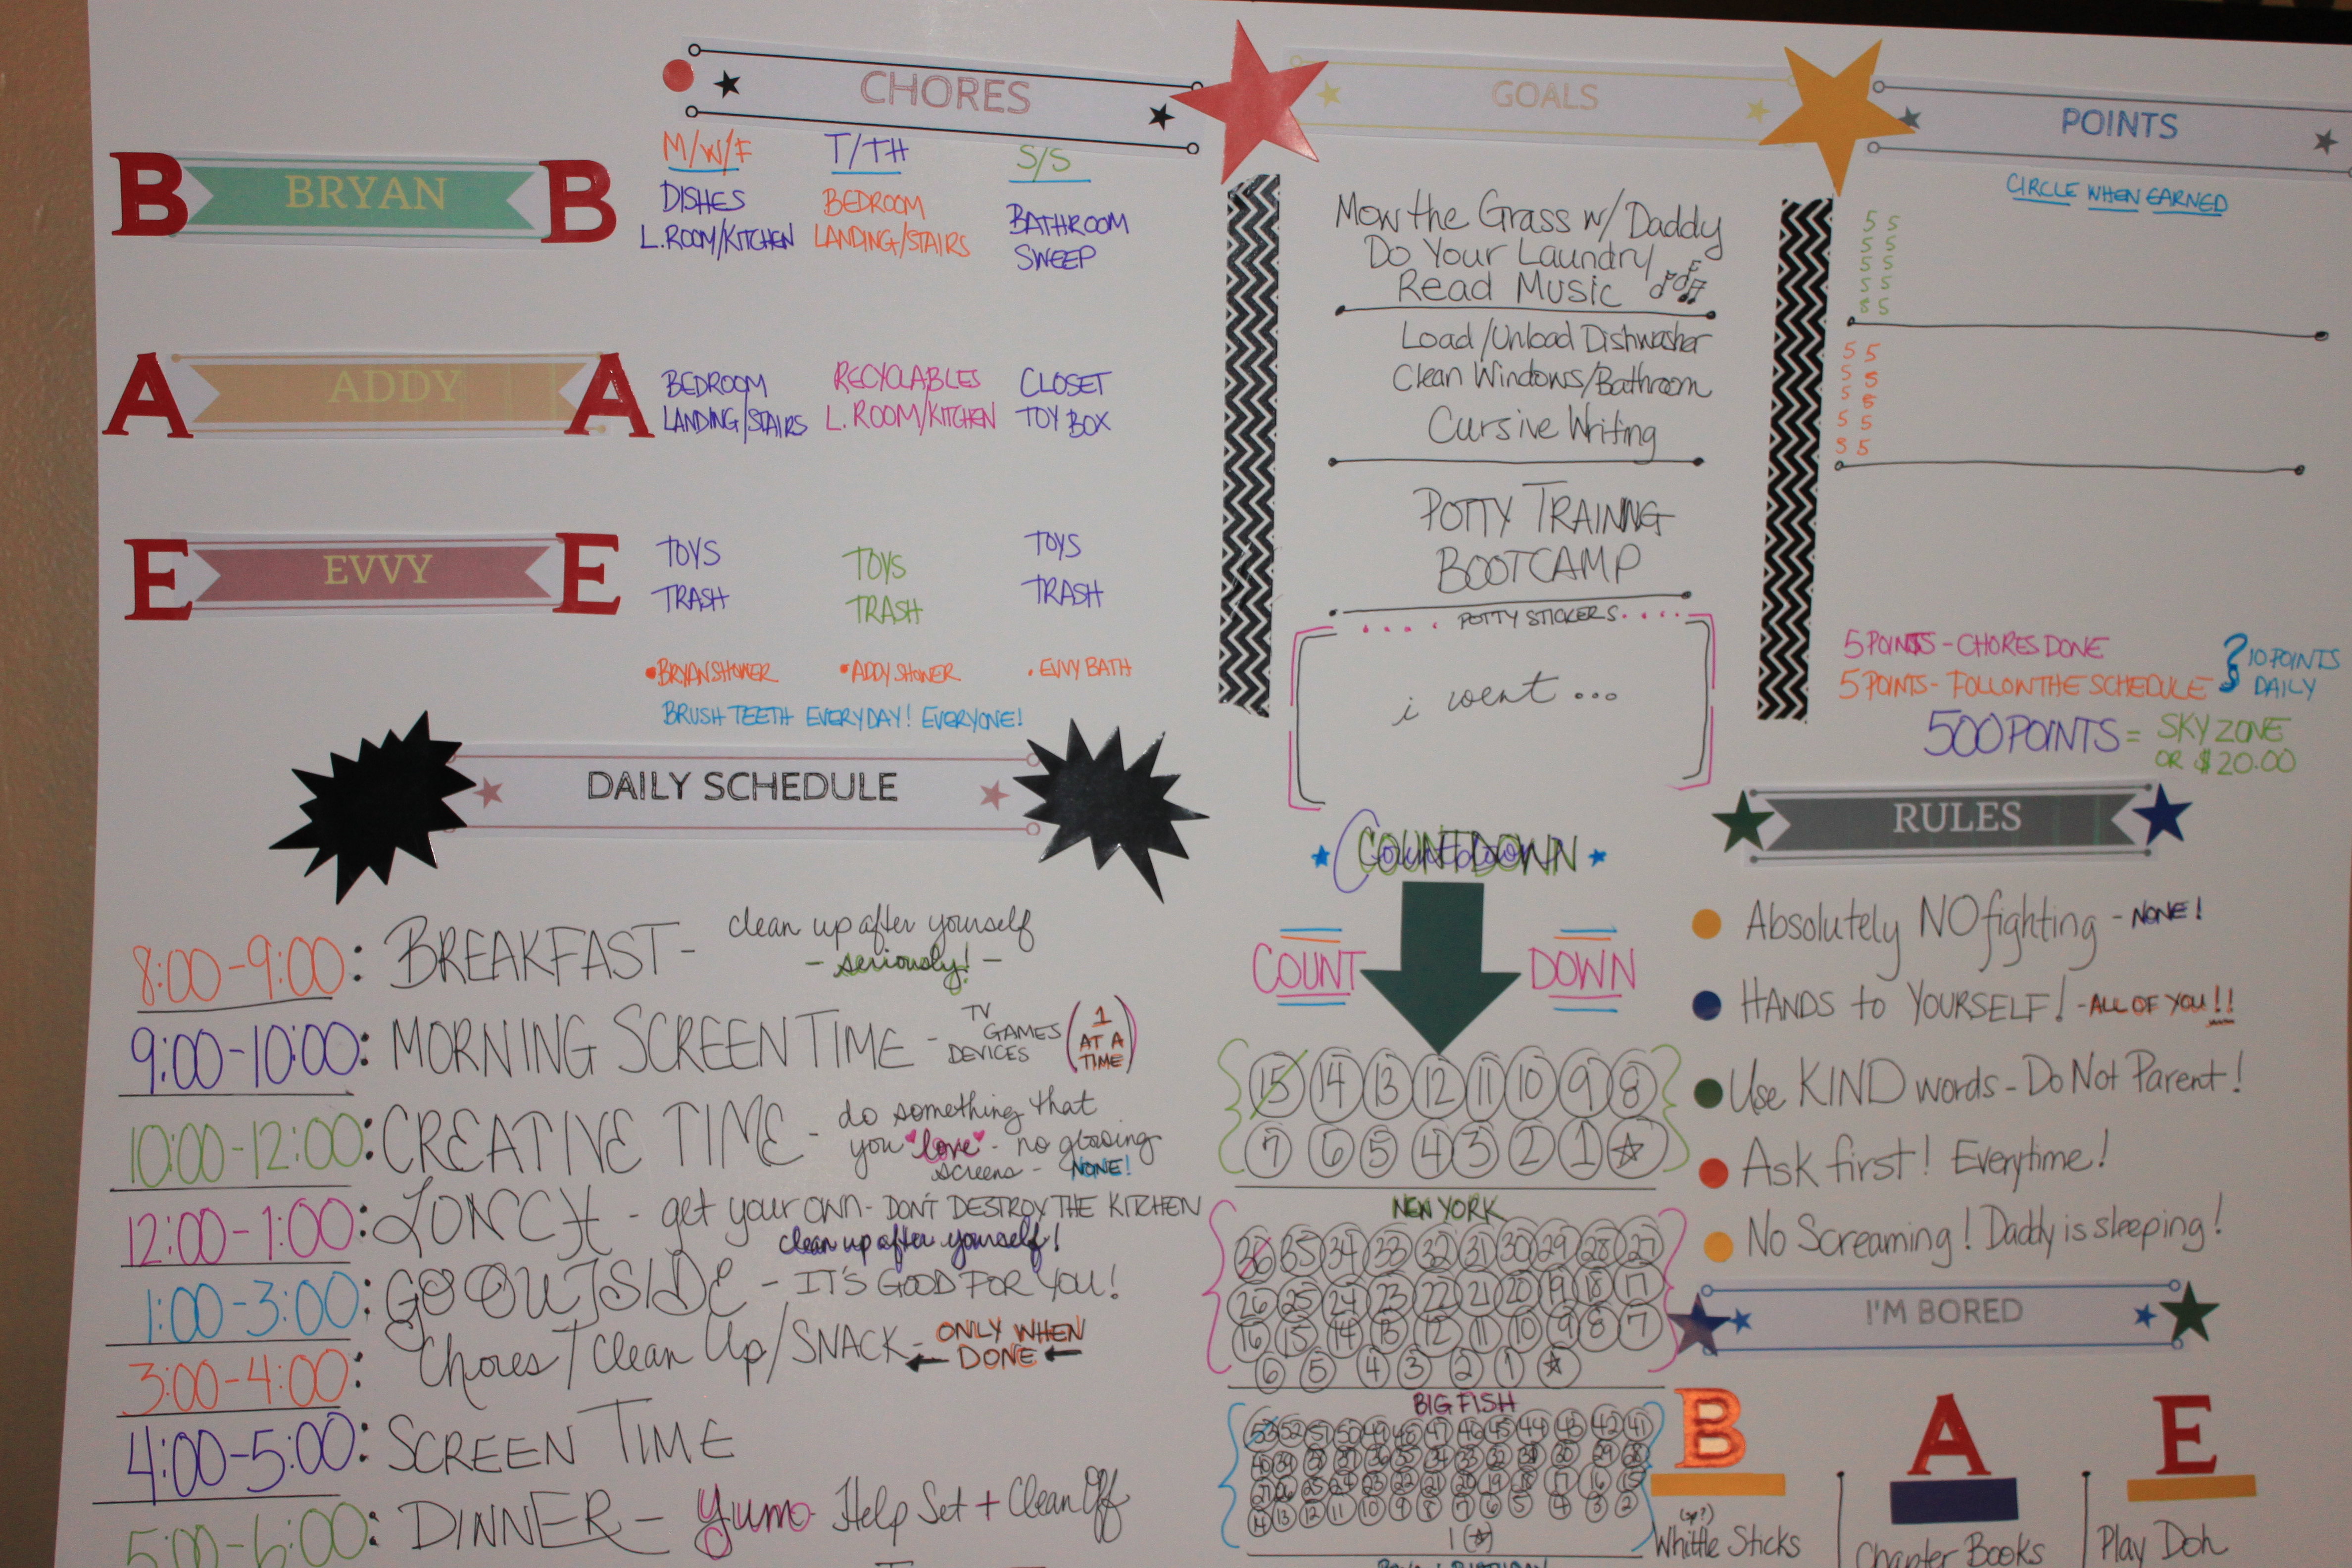 CHORES
GOALS
POINTS
CIRCLE WHEN EARNED
B BRYAN B
M/W/F
DISHES
L.ROOM/KITCHEN
T/TH
BEDROOM
LANDING/STAIRS
S/S
BATHROOM
SWEEP
Mow the Grass w/ Daddy
Do Your Laundry/
Read Music
5 5
5 5
5 5
5 5
5 5
A ADDY A
BEDROOM
LANDING/STAIRS
RECYCLABLES
L. ROOM/KITCHEN
CLOSET
TOY BOX
Load/Unload Dishwasher
Clean Windows/Bathroom
Cursive Writing
5 5
5 5
5 5
5 5
5 5
E EVVY E
TOYS
TRASH
TOYS
TRASH
TOYS
TRASH
POTTY TRAINING
BOOTCAMP
POTTY STICKERS
i went ...
• BRYAN SHOWER • ADDY SHOWER • EVVY BATH
BRUSH TEETH EVERYDAY! EVERYONE!
5 POINTS - CHORES DONE
5 POINTS - FOLLOW THE SCHEDULE
10 POINTS
DAILY
500 POINTS = SKY ZONE
OR $20.00
DAILY SCHEDULE
8:00-9:00: BREAKFAST - clean up after yourself
- seriously! -
9:00-10:00: MORNING SCREEN TIME - TV
GAMES
DEVICES
(1
AT A
TIME)
10:00-12:00: CREATIVE TIME - do something that
you love - no glowing
screens - NONE!
12:00-1:00: LUNCH - get your own - DON'T DESTROY THE KITCHEN
clean up after yourself!
1:00-3:00: GO OUTSIDE - IT'S GOOD FOR YOU!
3:00-4:00: Chores/Clean Up/SNACK - ONLY WHEN
DONE
4:00-5:00: SCREEN TIME
5:00-6:00: DINNER - yum Help Set + Clean Off
COUNTDOWN
COUNT DOWN
15 14 13 12 11 10 9 8
7 6 5 4 3 2 1
NEW YORK
36 35 34 33 32 31 30 29 28 27
26 25 24 23 22 21 20 19 18 17
16 15 14 13 12 11 10 9 8 7
6 5 4 3 2 1
BIG FISH
53 52 51 50 49 48 47 46 45 44 43 42 41
14 13 12 11 10 9 8 7 6 5 4 3 2
1
RULES
Absolutely NO fighting - NONE!
HANDS to YOURSELF! - ALL OF YOU!!
Use KIND words - Do Not Parent!
Ask first! Everytime!
No Screaming! Daddy is sleeping!
I'M BORED
B
Whittle Sticks
A
Chapter Books
E
Play Doh